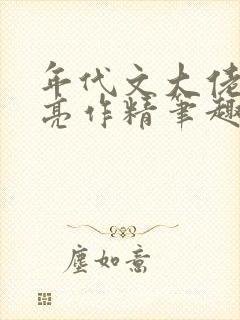 年代文大佬
亮作精笔趣
尘如意